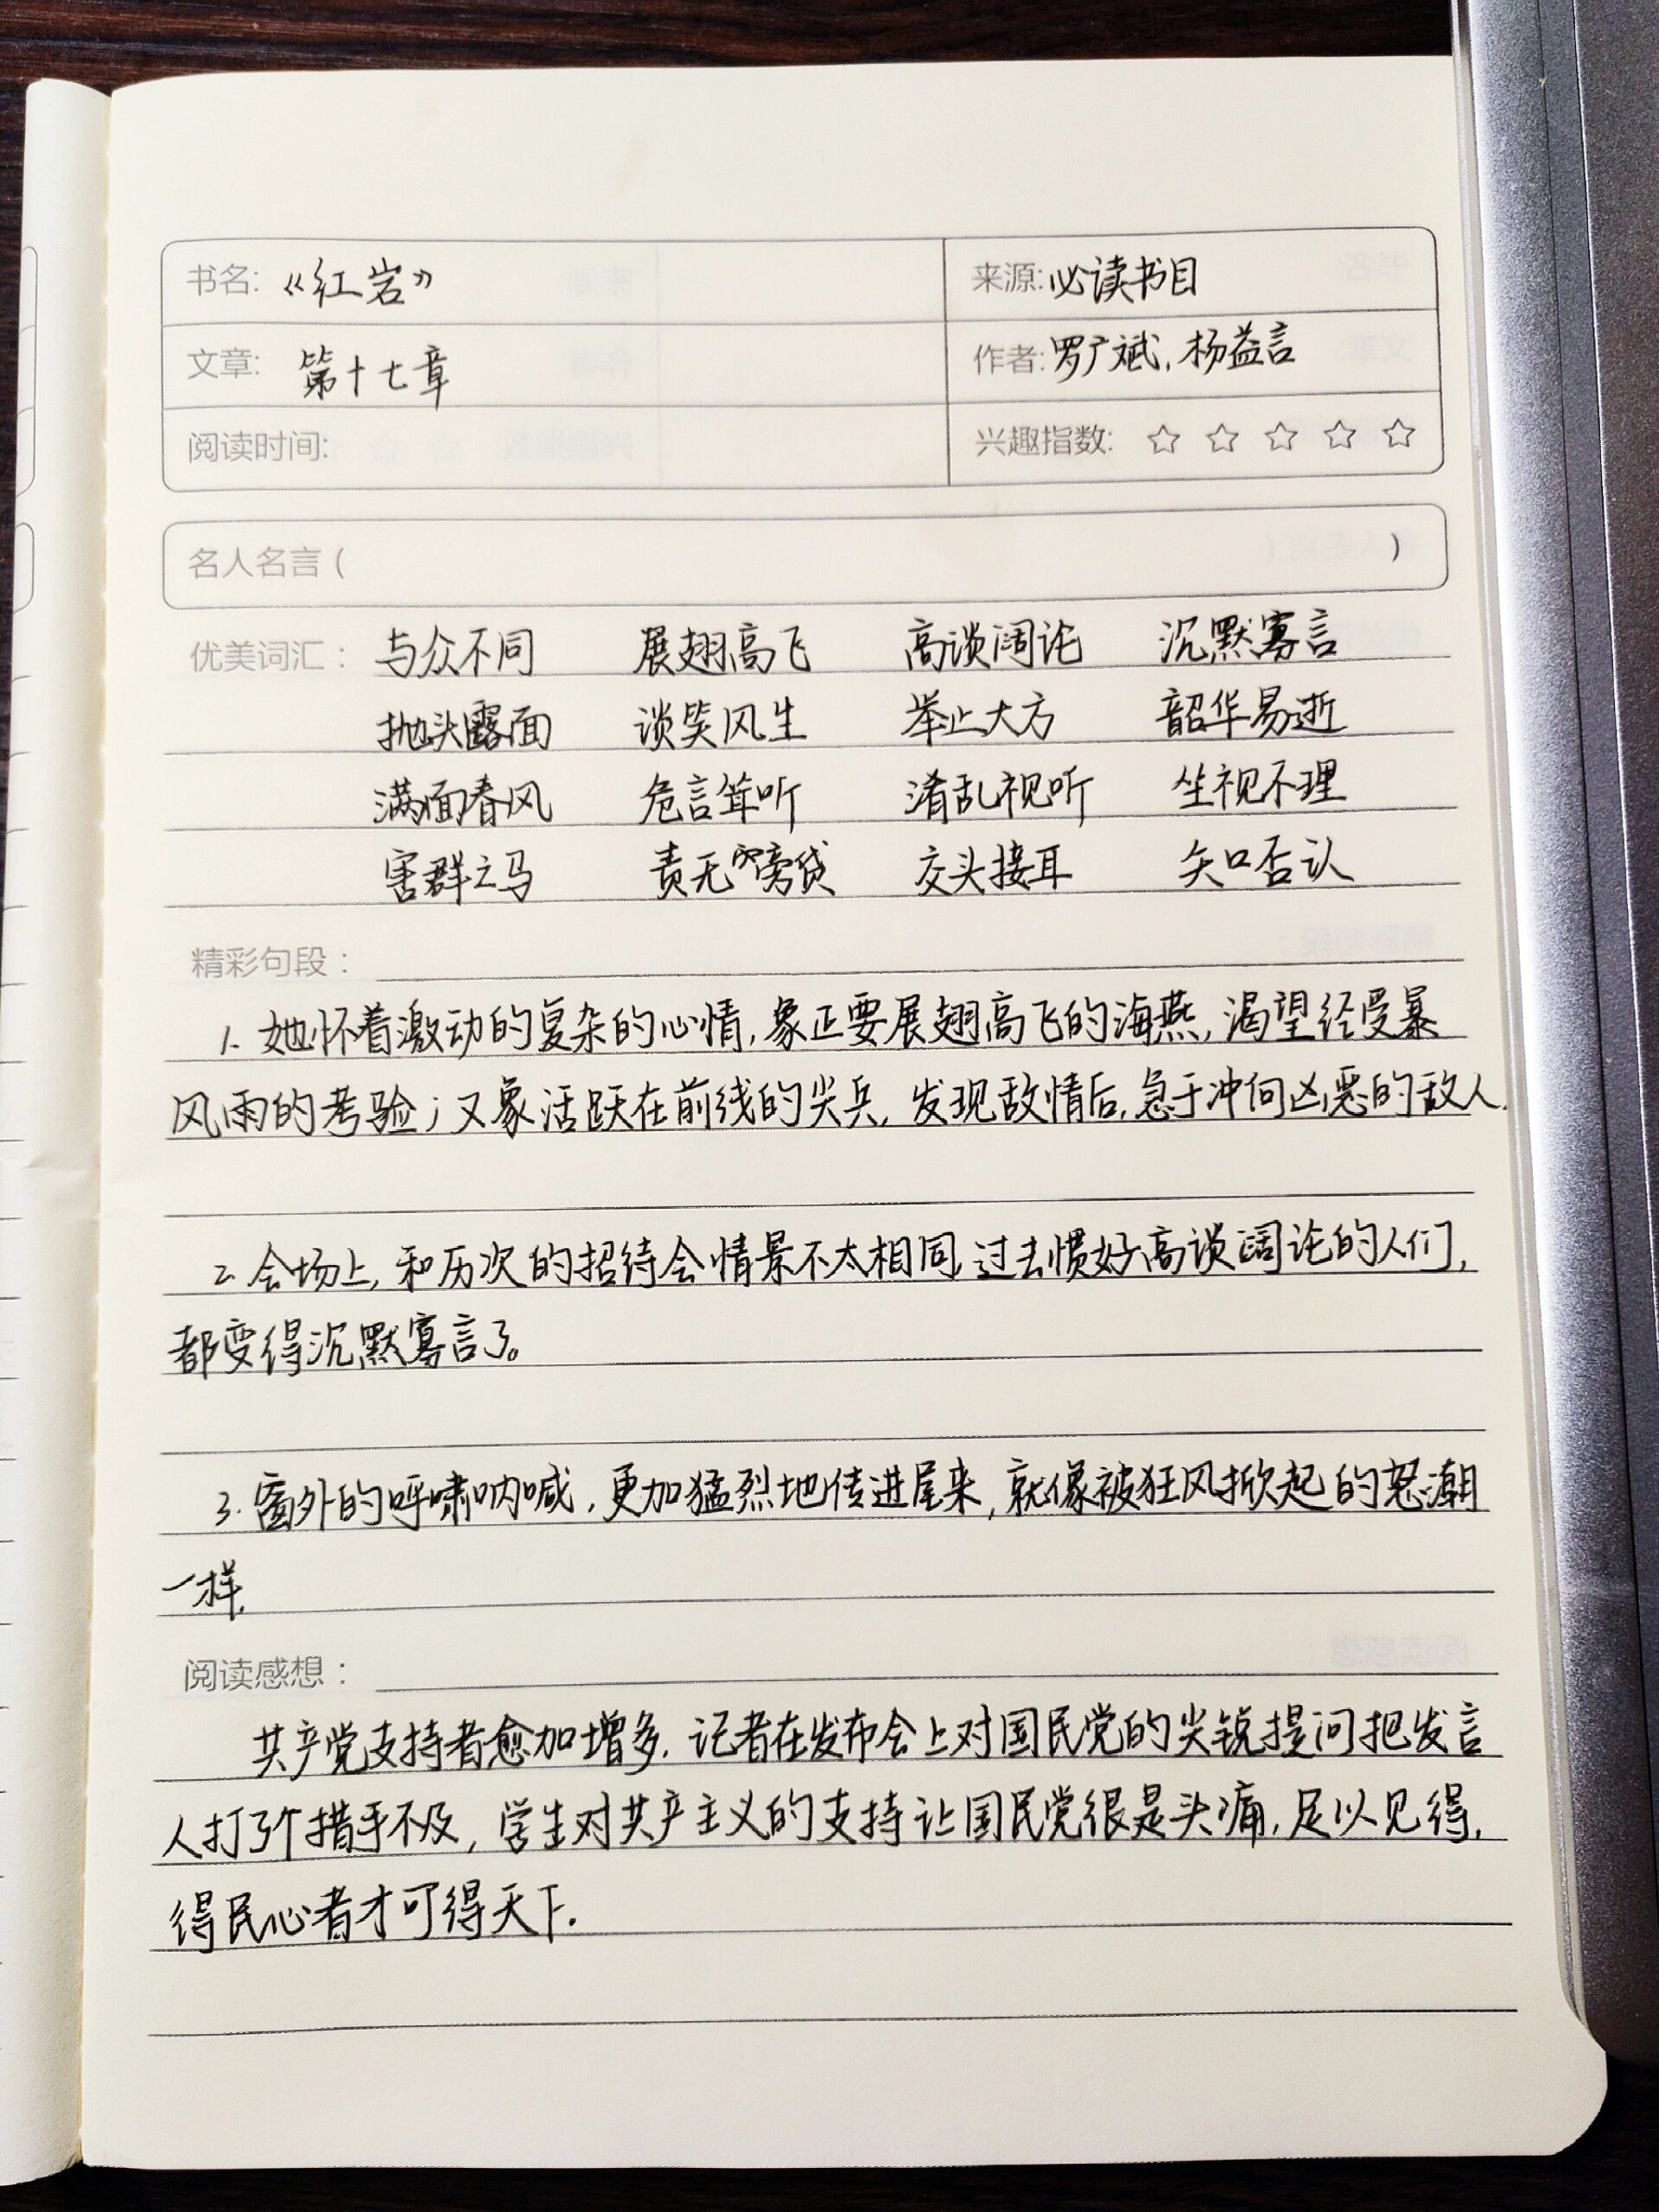 书名: 《红岩》 来源: 必读书目
文章: 第十七章 作者: 罗广斌, 杨益言
阅读时间: 兴趣指数: ☆ ☆ ☆ ☆ ☆
名人名言 ( )
优美词汇: 与众不同 展翅高飞 高谈阔论 沉默寡言
抛头露面 谈笑风生 举止大方 韶华易逝
满面春风 危言耸听 淆乱视听 坐视不理
害群之马 责无旁贷 交头接耳 矢口否认
精彩句段:
1. 她怀着激动的复杂的心情, 象正要展翅高飞的海燕, 渴望经受暴
风雨的考验; 又象活跃在前线的尖兵, 发现敌情后, 急于冲向凶恶的敌人.
2. 会场上, 和历次的招待会情景不太相同, 过去惯好高谈阔论的人们,
都变得沉默寡言了。
3. 窗外的呼啸呐喊, 更加猛烈地传进屋来, 就像被狂风掀起的怒潮
一样.
阅读感想:
共产党支持者愈加增多. 记者在发布会上对国民党的尖锐提问把发言
人打了个措手不及, 学生对共产主义的支持让国民党很是头痛, 足以见得,
得民心者才可得天下.